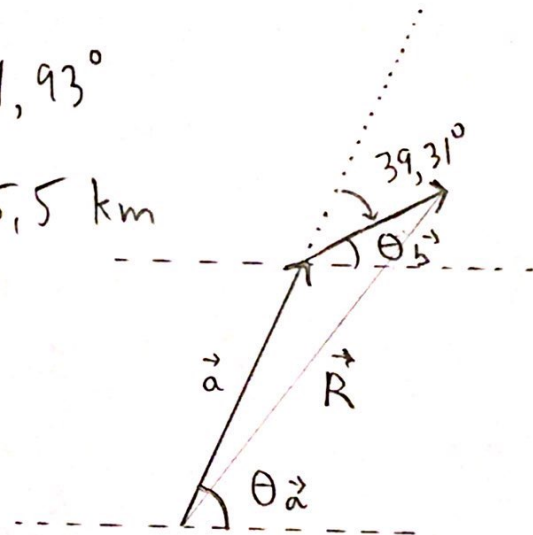 ,93°
5,5 km
39,31°
θb⃗
a⃗
R⃗
θa⃗